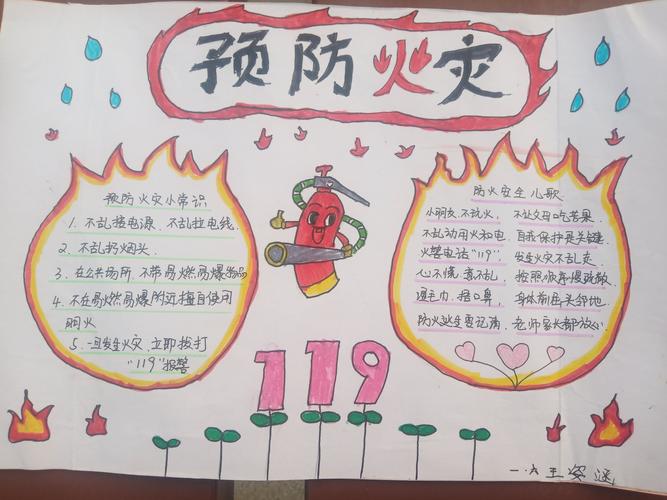 预防火灾
预防火灾小常识
1. 不乱接电源、不乱拉电线.
2. 不乱扔烟头.
3. 在公共场所、不带易燃易爆物品
4. 不在易燃易爆附近擅自使用
明火
5. 一旦发生火灾、立即拨打
"119"报警
防火安全儿歌
小朋友.不玩火, 不让父母吃苦果.
不乱动用火和电, 自我保护是关键.
火警电话"119", 发生火灾不乱走.
心不慌.意不乱, 按照顺序慢疏散.
湿毛巾.捂口鼻, 身体前屈头邻地.
防火逃生要记清, 老师家长都放心.
119
一.六 王姿涵